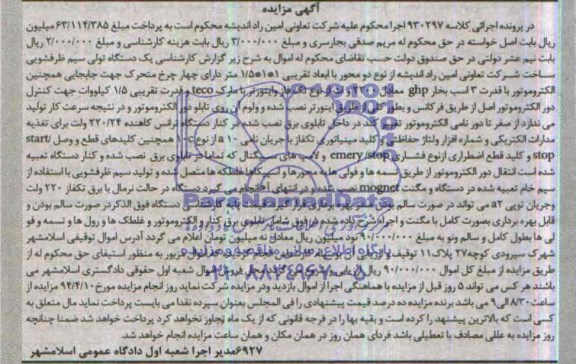 آگهی مزایده
در پرونده اجرائی کلاسه ۹۳۰۲۹۷ اجرا محکوم علیه شرکت تعاونی امین راد اندیشه محکوم است به پرداخت مبلغ ۶۳/۱۱۴/۳۸۵ میلیون
ریال بابت اصل خواسته در حق محکوم له مریم صدقی بجارسری و مبلغ ۳/۰۰۰/۰۰۰ ریال بابت هزینه کارشناسی و مبلغ ۲/۰۰۰/۰۰۰ ریال
بابت نیم عشر دولتی در حق صندوق دولت حسب تقاضای محکوم له اموال به شرح زیر گزارش کارشناسی یک دستگاه تولی سیم ظرفشویی
ساخت شرکت تعاونی امین راد اندیشه از نوع دو محور با ابعاد تقریبی ۱*۱*۱/۵ متر دارای چهار چرخ متحرک جهت جابجایی همچنین
الکتروموتور با قدرت ۳ اسب بخار ghp معادل نوع تکفاز و اینورتر با مارک teco و قدرت تقریبی ۱/۵ کیلووات جهت کنترل
دور الکتروموتور اصل از طریق فرکانس و بطور کلی از طریق اینورتر نصب شده و ولوم آن روی تابلو دور الکتروموتور و در نتیجه سرعت کار تولید
می ندارد از صفر تا دور نامی الکتروموتور تغییر کند در داخل تابلوی برق نصب شده در کنار دستگاه ترانس کاهنده ۲۲۰/۲۴ ولت برای تغذیه
مدارات الکتریکی و شماره افزار ولتاژ حفاظتی و کلید مینیاتوری تکفاز با جریان نامی ۱۰ a از نوع همچنین کلیدهای قطع و وصل start/
stop و کلید قطع اضطراری از نوع فشاری emery/stop و لامپ های سیگنال که تماما در تابلوی برق نصب شده و کنار دستگاه تعبیه
شده است انتقال دور الکتروموتور از طریق تسمه ها و فولی ها به محورها و غلطکها متصل شده و تولید سیم ظرفشویی با استفاده از
سیم خام تعبیه شده در دستگاه و مگنت mognet نصب شده و در انتهای انجام می گیرد دستگاه در حالت نرمال با برق تکفاز ۲۲۰ ولت
وجریان نویی a۲ می تواند در صورت سالم بودن دستگاه فوق الذکر در صورت سالم بودن و
قابل بهره برداری بصورت کامل با مگنت و اجزاء شرح داده شده در فوق شامل تابلوی برق کنار و الکتروموتور و غلطک ها و رول ها و تسمه و فو
لی ها بطول کامل و سالم ونو به مبلغ ۹۰/۰۰۰/۰۰۰ نود میلیون ریال معادل نه میلیون تومان اعلام می گردد آدرس اموال توقیفی اسلامشهر
شهرک سپرودی کوچه۲۷ پلاک۱۱ توقیف و ارزیابی مزبور به منظور استیفای حق محکوم له از
طریق مزایده از مبلغ کل اموال ۹۰/۰۰۰/۰۰۰ ریال ارزیابی اموال شعبه اول حقوقی دادگستری اسلامشهر می
باشند هر کس می تواند ۵ روز قبل از مزایده با هماهنگی اجرا از اموال بازدید ودر مزایده شرکت نماید روز انجام مزایده مورخ ۹۴/۴/۱۰ از
ساعت۸/۳۰ الی۹ می باشد برنده مزایده ده درصد قیمت پیشنهادی را فی المجلس بعنوان سپرده نقدا می بایست پرداخت نماید مال متعلق به
کسی است که بالاترین پیشنهاد را کرده است و بقیه بها را در فرجه قانونی که از یک ماه تجاوز نخواهد کرد پرداخت خواهد شد ضمنا چنانچه
روز مزایده به عللی مصادف با تعطیلی باشد فردای همان روز در همان مکان و همان ساعت مزایده انجام خواهد شد.
۶۹۲۷مدیر اجرا شعبه اول دادگاه عمومی اسلامشهر
ParsNamadData
پایگاه اطلاع رسانی مناقصه و مزایده
۰۲۱-۸۸۳۴۹۶۷۰-۵